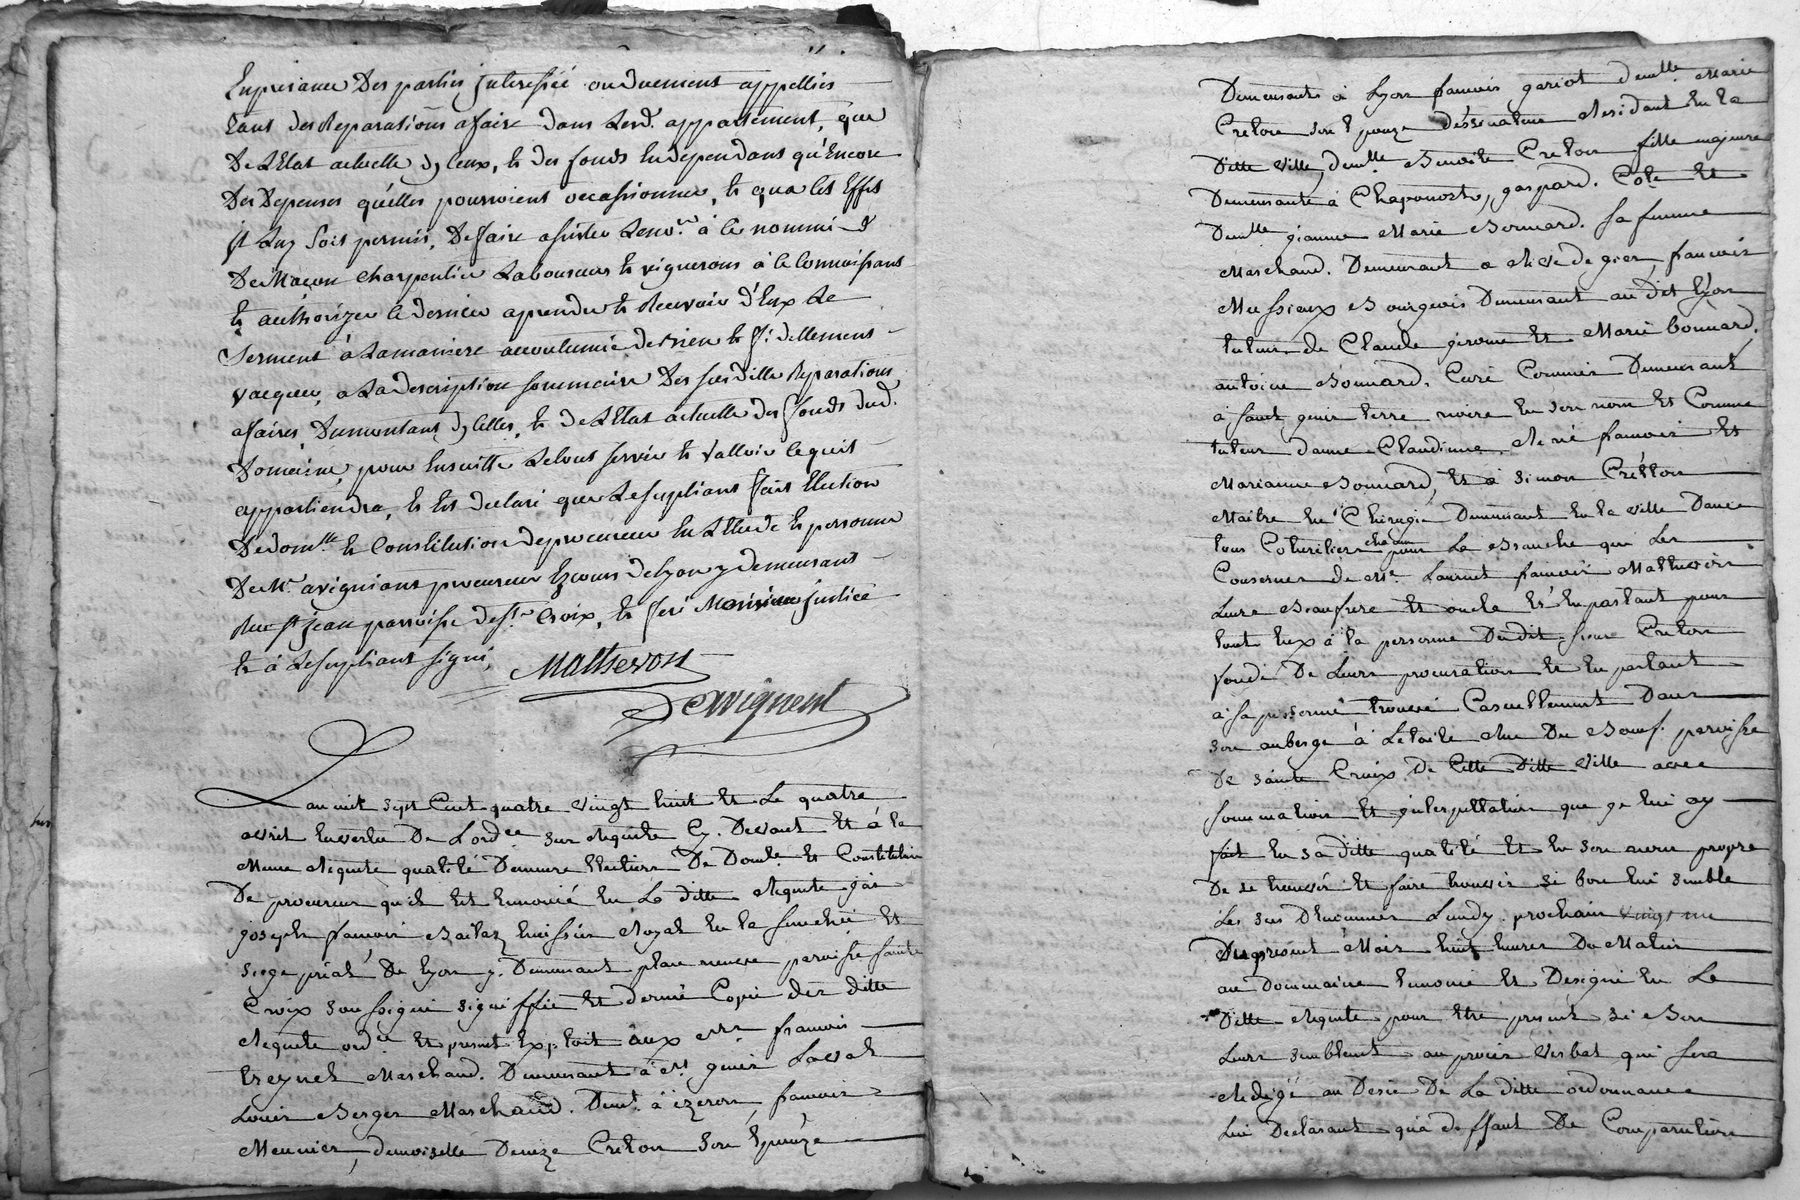 En presance Des parties jnteressée ou duement appellées
tant des Reparations afaire dans Led. appartement, que
De Letat actuelle d'jceux, et des fonds En dependans qu'encore
Des Depenses qu'elles pourroient occassionner, et qua Cet Effet
jl Luy soit permis, De faire assister à ce nommé
De Maçon Charpentier Laboureurs et vignerons à Ce Connoissant
et authorizer Ce dernier aprendre et Recevoir d'Eux Le
Serment à La maniere accoutumée de bien et fidellement
vacquer, a La description sommaire Des susditte Reparations
afaires, Du montant d'jcelles, et de L'Etat actuelle des fonds dud.
Domaine, pour Ensuitte Le tout servir et valloir Ce quil
appartiendra, et Est declaré que Le supliant fait Election
De dom.lle et Constitution de procureur En L'Etude et personne
De M.e avignant procureur Es cours de Lyon y demeurant
Rue S.t Jean parroisse de S.te Croix, et seré justice
et à Le supliant signé,
Mathevon
Davignent
L'an mil sept Cent quatre vingt huit Et Le quatre
avril En vertu De L'ord.ce sur Requete Cy. Devant Et à la
Meme Requete qualité Demeure Election De Domle. Et Constitution
De procureur qu'il Est Ennoncé En La ditte Requete jai
joseph francois huissier Royal En la senechée Et
siege prial De Lyon y. Demeurant place neuve paroisse sainte
Croix soussigné signiffié Et donné Copie des ditte
Requete ord.ce Et present Exploit aux s.rs francois
treynet Marchand. Demeurant à s.t genis Laval
Louis Berger Marchand. Demt. à izeron, francois
Meunier, demoiselle Denize Creton son Epouze
Demeurants à Lyon francois gariot demlle Marie
Cretore son Epouze dessinateur Residant En la
Ditte ville, demlle Benoite Creton fille majeure
Demeurante à Chaponost, gaspard. Cote Et
Demlle jeanne Marie Bonnard. sa femme
Marchand. Demeurant a Rive de gier, francois
Mussieux Bourgeois Demeurant au Dit Lyon
tuteur de Claude gerome Et Marie bonnard,
antoine Bonnard. Curé Commis Demeurant
à saint genis terre noire En son nom Et Comme
tuteur danne Claudinne, René francois Et
Marianne Bonnard, Et à simon Cretton
Maitre En Chirugie Demeurant En la ville Dance
tous Coheritiers chacun pour La Branche qui Les
Concernes de M.e Laurent francois Mathevon
Leure Beaufrere Et oncle Et En parlant pour
tout Eux à la personne Dudit sieur Creton
fondé De Leurs procuration Et En parlant
à sa personne trouvé Casuellement Dans
son auberge à Letoile Rue Du Boeuf. paroisse
De sainte Croix De Cette Ditte ville avec
sommation Et jnterpellation que je lui ay
fait En sa ditte qualité Et En son nom propre
De se trouver Et faire trouver si bon lui semble
Les sus Denommés Lundy. prochain vingt un
Du present Mois huit heures Du Matin
au Dommaine Ennoncé Et Designé En La
Ditte Requete pour Etre present si Bon
Leurs semblent au procès verbal qui sera
Redigé au Desir De La ditte ordonnance
Lui Declarant qu'a deffaut De Comparution